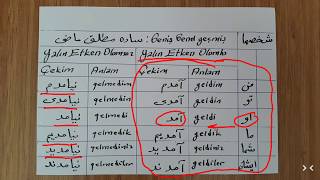 شخصها
ساده مطلق ماضی : Geniş Bend geçmiş
Yalın Etken Olumsuz Yalın Etken Olumlu
Çekim Anlam Çekim Anlam
نیامدم gelmedim آمدم geldim من
نیامدی gelmedin آمدی geldin تو
نیامد gelmedi آمد geldi او
نیامدیم gelmedik آمدیم geldik ما
نیامدید gelmediniz آمدید geldiniz شما
نیامدند gelmediler آمدند geldiler ایشان